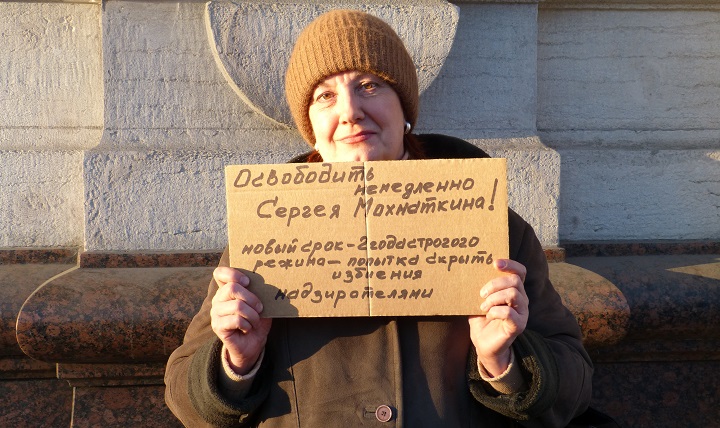 Освободить
немедленно
Сергея Мохнаткина!
новый срок-2годастрогого
режима-попытка скрыть
избиения
надзирателями